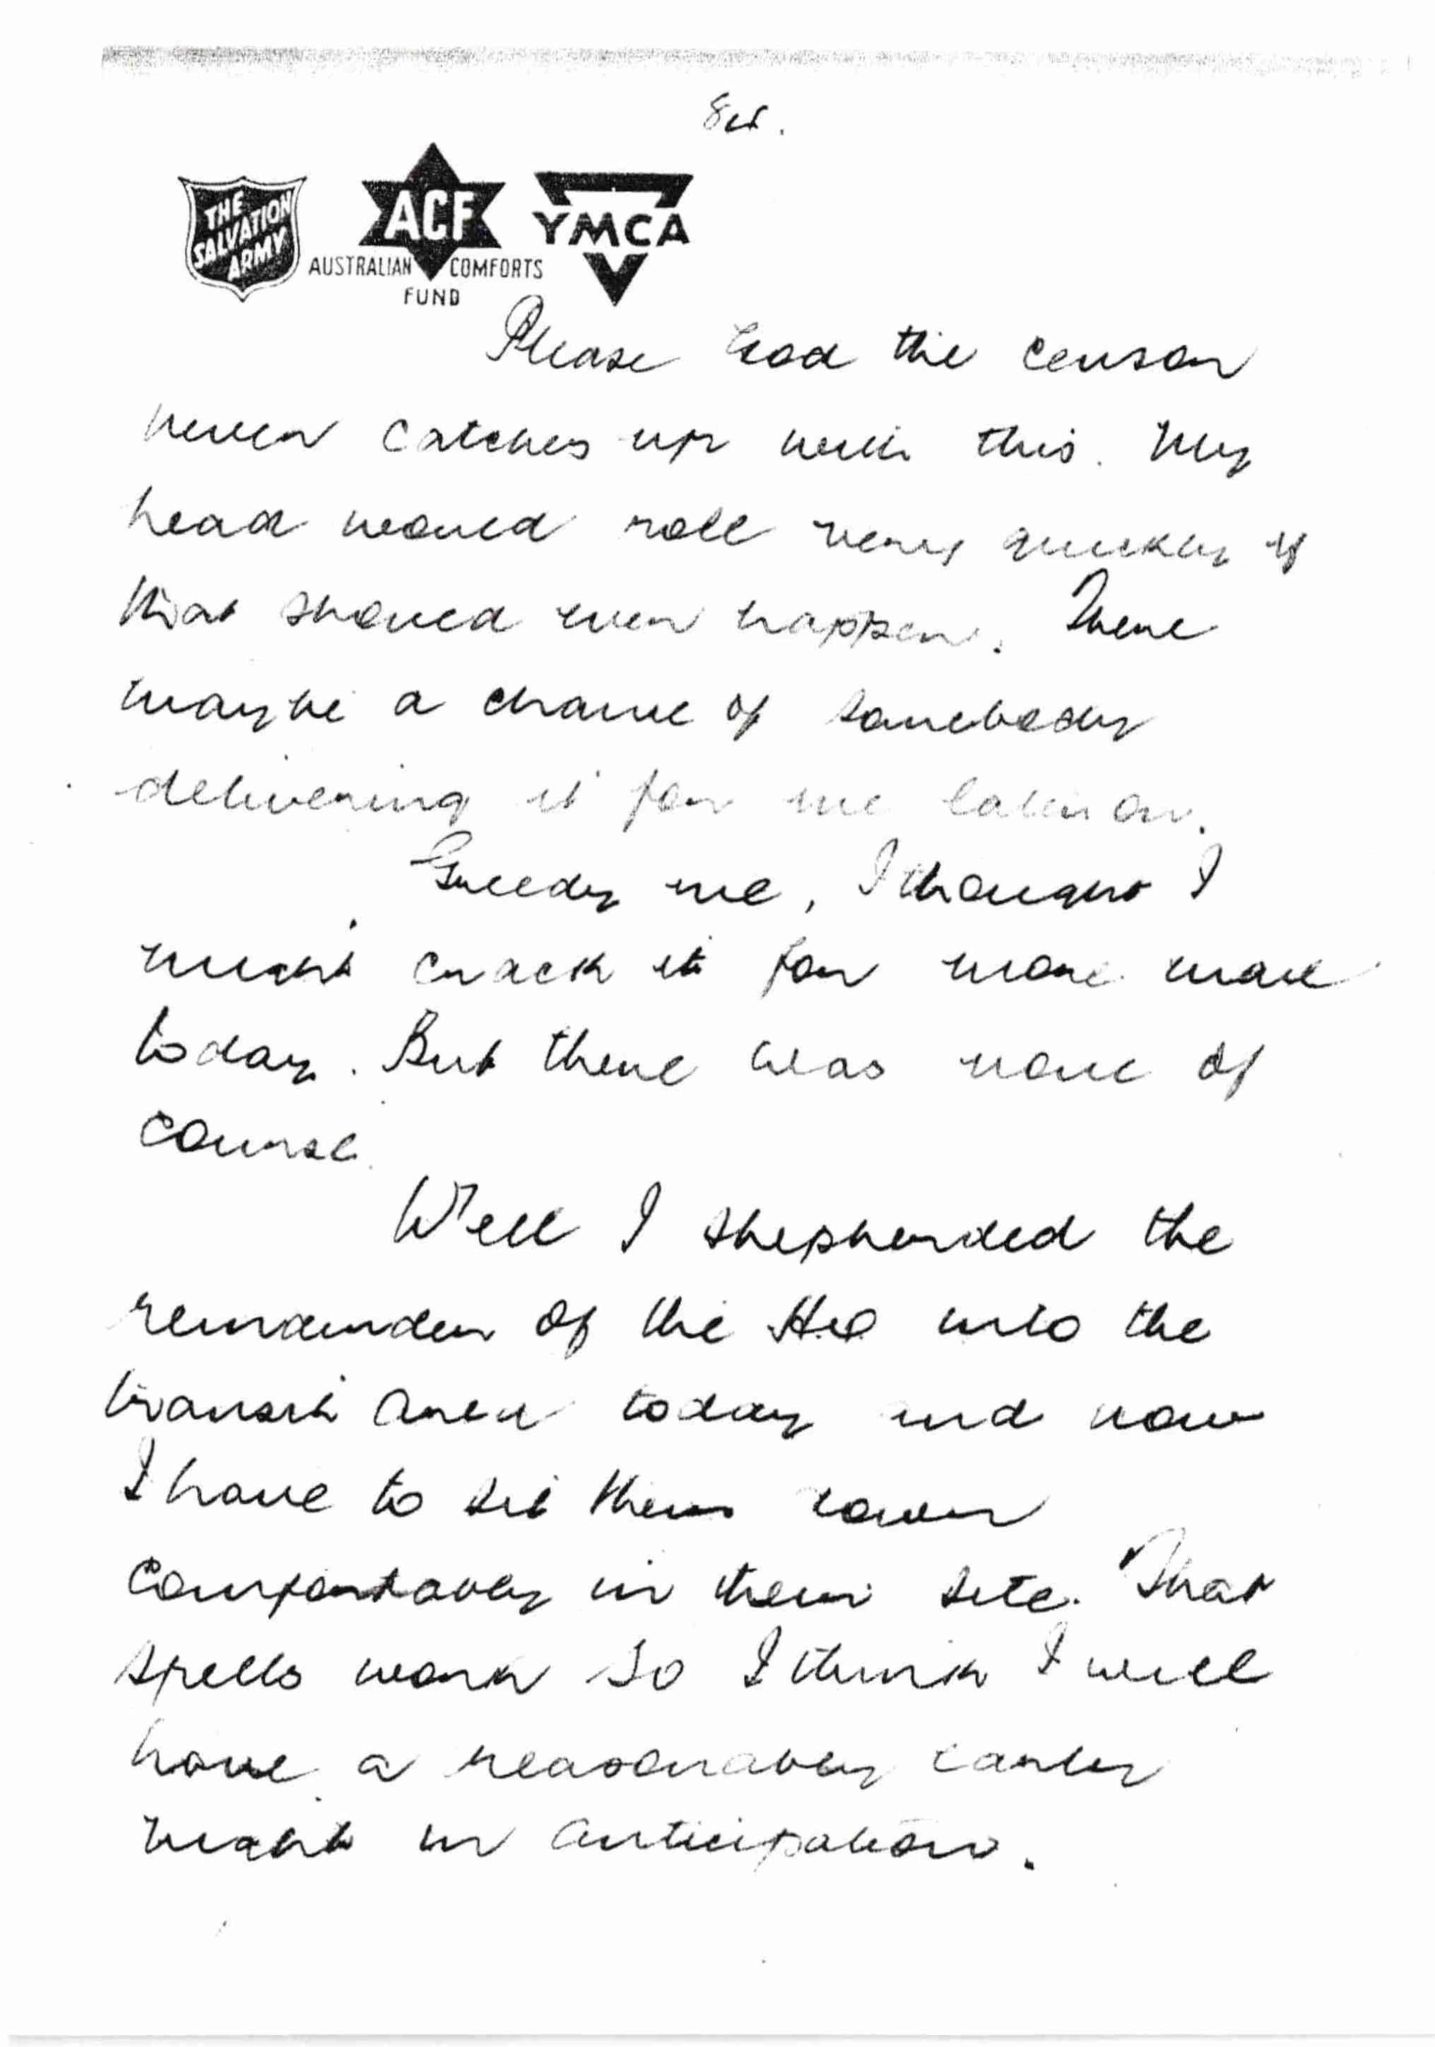 THE
SALVATION
ARMY
ACF
AUSTRALIAN COMFORTS
FUND
YMCA
Please God the censor
never catches up with this. My
head would roll very quickly if
that should ever happen. There
maybe a chance of somebody
delivering it for me later on.
Greedy me, I thought I
might crack it for more mail
today. But there was none of
course.
Well I shepherded the
remainder of the HQ into the
transit area today and now
I have to set them down
comfortably in their site. That
spells work so I think I will
have a reasonably early
night in anticipation.